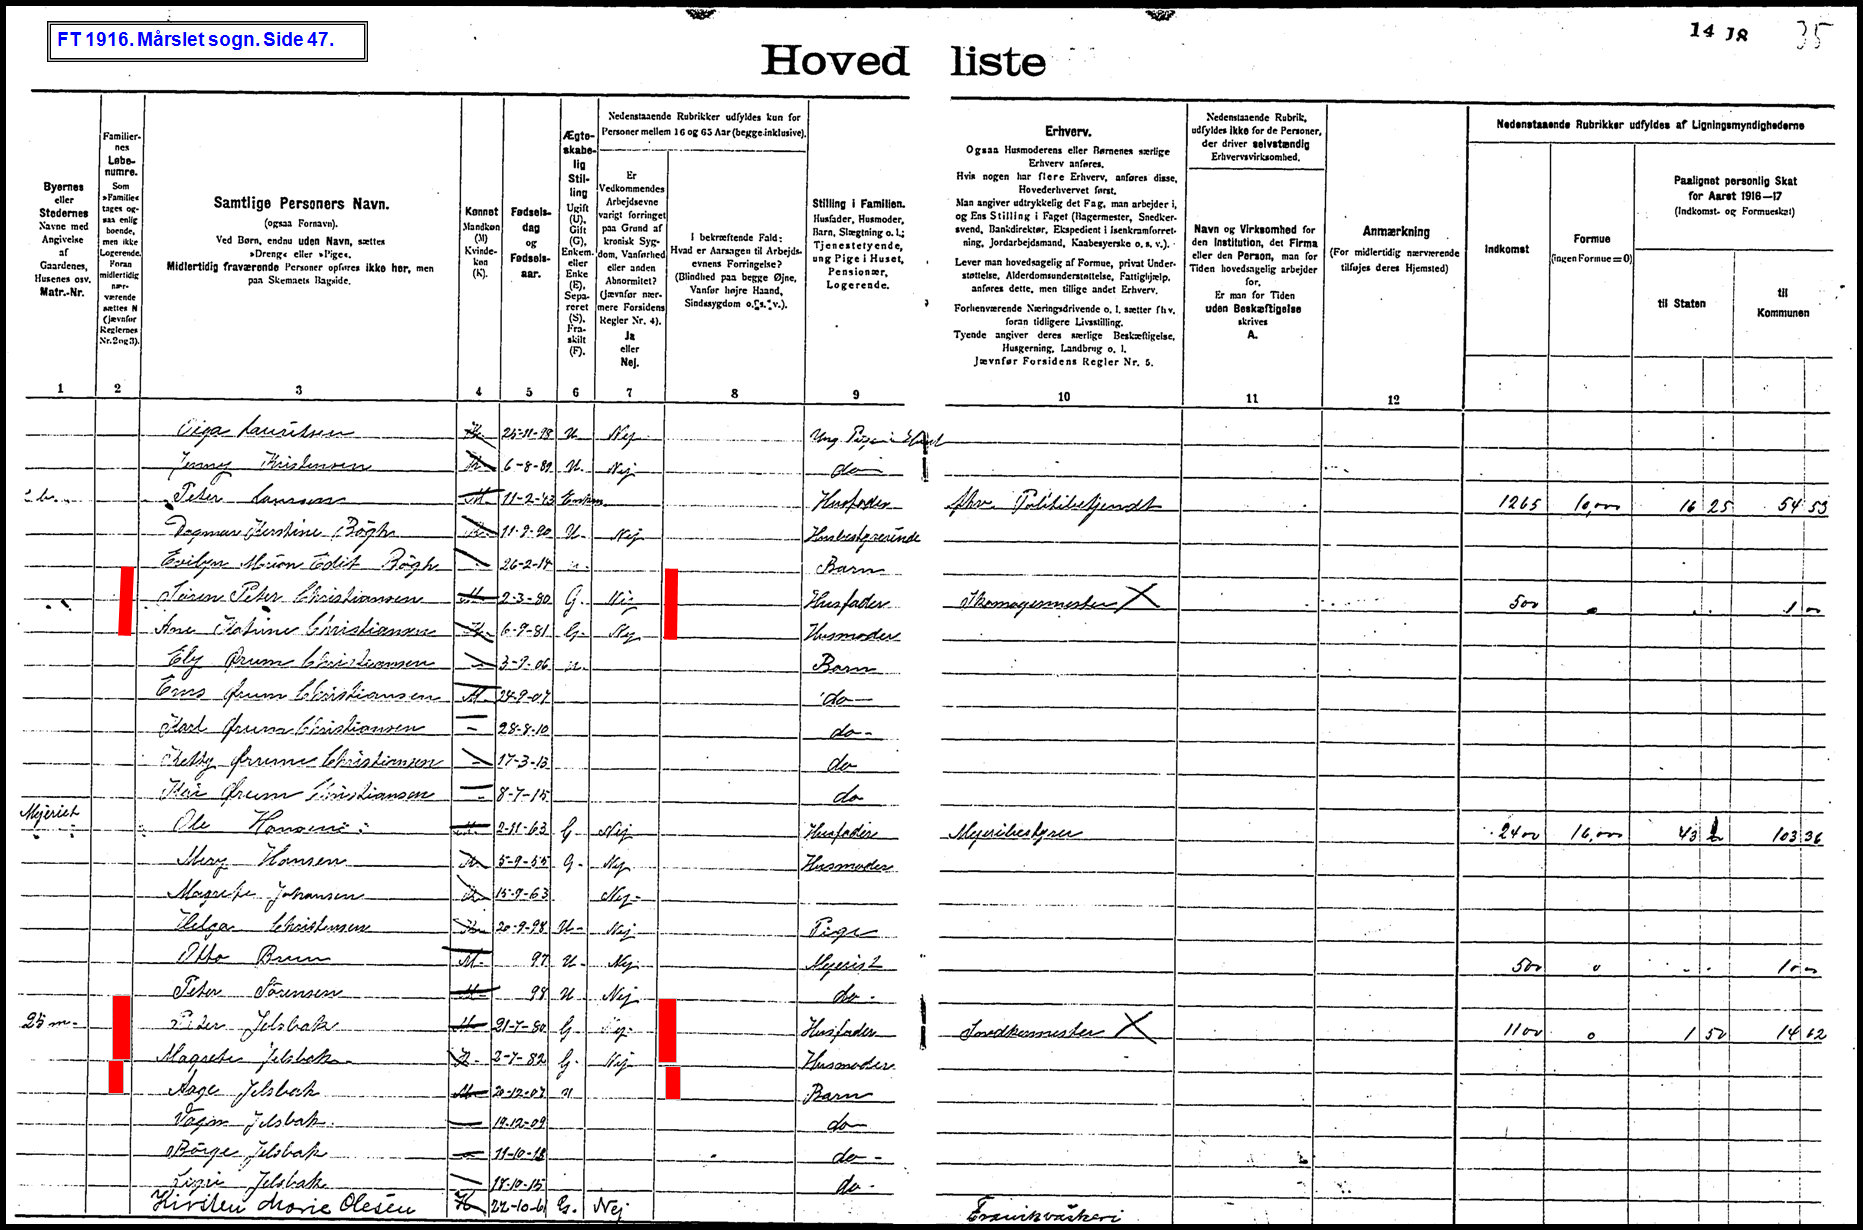 FT 1916. Mårslet sogn. Side 47.
14 JR 35
Hoved liste
Byernes
eller
Stedernes
Navne med
Angivelse
af
Gaardenes,
Husenes osv.
Matr.-Nr.
Familier-
nes
Løbe-
numre.
Som
»Familie«
tages og-
saa enlig
boende,
men ikke
Logerende.
Foran
midlertidig
nær-
værende
sættes N
(jævnfør
Reglernes
Nr. 2 og 3).
Samtlige Personers Navn.
(ogsaa Fornavn).
Ved Børn, endnu uden Navn, sættes
»Dreng« eller »Pige«.
Midlertidig fraværende Personer opføres ikke her, men
paa Skemaets Bagside.
Kønnet
Mandkøn
(M)
Kvinde-
køn
(K).
Fødsels-
dag
og
Fødsels-
aar.
Ægte-
skabe-
lig
Stil-
ling
Ugift
(U),
Gift
(G),
Enkem.
eller
Enke
(E),
Sepa-
reret
(S),
Fra-
skilt
(F).
Nedenstaaende Rubrikker udfyldes kun for
Personer mellem 16 og 65 Aar (begge inklusive).
Er
Vedkommendes
Arbejdsevne
varigt forringet
paa Grund af
kronisk Syg-
dom, Vanførhed
eller anden
Abnormitet?
(Jævnfør nær-
mere Forsidens
Regler Nr. 4).
Ja
eller
Nej.
I bekræftende Fald:
Hvad er Aarsagen til Arbejds-
evnens Forringelse?
(Blindhed paa begge Øjne,
Vanfør højre Haand,
Sindssygdom o. s. v.).
Stilling i Familien.
Husfader, Husmoder,
Barn, Slægtning o. l.;
Tjenestetyende,
ung Pige i Huset,
Pensionær,
Logerende.
Erhverv.
Ogsaa Husmoderens eller Børnenes særlige
Erhverv anføres.
Hvis nogen har flere Erhverv, anføres disse,
Hovederhvervet først.
Man angiver udtrykkelig det Fag, man arbejder i,
og Ens Stilling i Faget (Bagermester, Snedker-
svend, Bankdirektør, Ekspedient i Isenkramforret-
ning, Jordarbejdsmand, Kaabesyerske o. s. v.).
Lever man hovedsagelig af Formue, privat Under-
støttelse, Alderdomsunderstøttelse, Fattighjælp,
anføres dette, men tillige andet Erhverv.
Forhenværende Næringsdrivende o. l. sætter fhv.
foran tidligere Livsstilling.
Tyende angiver deres særlige Beskæftigelse,
Husgerning, Landbrug o. l.
Jævnfør Forsidens Regler Nr. 5.
Nedenstaaende Rubrik,
udfyldes ikke for de Personer,
der driver selvstændig
Erhvervsvirksomhed.
Navn og Virksomhed for
den Institution, det Firma
eller den Person, man for
Tiden hovedsagelig arbejder
for.
Er man for Tiden
uden Beskæftigelse
skrives
A.
Anmærkning
(For midlertidig nærværende
tilføjes deres Hjemsted)
Nedenstaaende Rubrikker udfyldes af Ligningsmyndighederne
Indkomst
Formue
(ingen Formue = 0)
Paalignet personlig Skat
for Aaret 1916—17
(Indkomst- og Formueskat)
til Staten
til
Kommunen
1 2 3 4 5 6 7 8 9 10 11 12
Olga Lauritsen K. 25-11-98 U Nej Ung Pige i Huset
Jenny Kristensen K 6-8-89 U. Nej do
Peter Laursen M 11-2-43 Enkem. Husfader fhv. Politibetjendt 1265 10,000 16 25 54 53
Dagmar Kerstine Bögh K. 11-9-90 U. Nej Husbestyrerinde
Edit Bögh - 26-2-14 u. Barn
Sören Peter Christiansen M. 2-3-80 G. Nej Husfader Skomagermester X 500 0 1 00
Ane Katrine Christiansen K. 6-9-81 G. Nej Husmoder
Ely Ørum Christiansen - 3-9-06 u. Barn
Ørum Christiansen M. 24-9-07 do
Karl Ørum Christiansen - 28-8-10 do -
Ketty Ørum Christiansen - 17-3-13 do
Kai Ørum Christiansen - 8-7-15 do
Mejeriet Ole Hansen M. 2-11-63 G Nej Husfader Mejeribestyrer 2400 16,000 43 103 36
Mary Hansen K 5-9-55 G. Nej Husmoder
Magrete Johansen K 15-9-63 Nej-
Helga Christensen K. 20-9-98 U- Nej Pige
Otto Brun M. 97 U. Nej Mejerist 500 0 1 00
Peter Sörensen M. 98 U Nej do.
25 m. Peter Jelsbak M 21-7-80 G. Nej- Husfader Snedkermester X 1100 0 1 50 14 62
Magrete Jelsbak K. 2-7-82 G. Nej Husmoder
Aage Jelsbak M 20-12-07 u Barn
Vagn Jelsbak. - 19-12-09 do
Börge Jelsbak - 11-10-12 do -
Jelsbak 18-10-15 do -
Kirsten Marie Olesen K 22-10-61 G. Nej